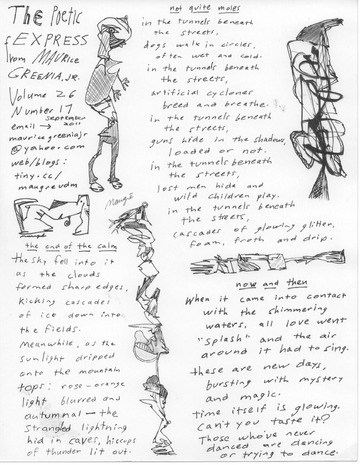 The Poetic
EXPRESS
from MAURICE
GREENIA, JR.
Volume 26
Number 17
September
2011
email →
mauricegreeniajr
@yahoo.com
web/blogs:
tiny.cc/
maugreudm
not quite moles
in the tunnels beneath
the streets,
dogs walk in circles,
often wet and cold.
in the tunnels beneath
the streets,
artificial cyclones
breed and breathe.
in the tunnels beneath
the streets,
guns hide in the shadows,
loaded or not.
in the tunnels beneath
the streets,
lost men hide and
wild children play.
in the tunnels beneath
the streets,
cascades of glowing glitter,
foam, froth and drip.
the end of the calm
the sky fell into it
as the clouds
formed sharp edges,
kicking cascades
of ice down into
the fields.
Meanwhile, as the
sunlight dripped
onto the mountain
tops: rose-orange
light blurred and
autumnal — the
strangled lightning
hid in caves, hiccups
of thunder lit out.
now and then
When it came into contact
with the shimmering
waters, all love went
"splash" and the air
around it had to sing.
these are new days,
bursting with mystery
and magic.
time itself is glowing.
can't you taste it?
Those who've never
danced are dancing
or trying to dance.